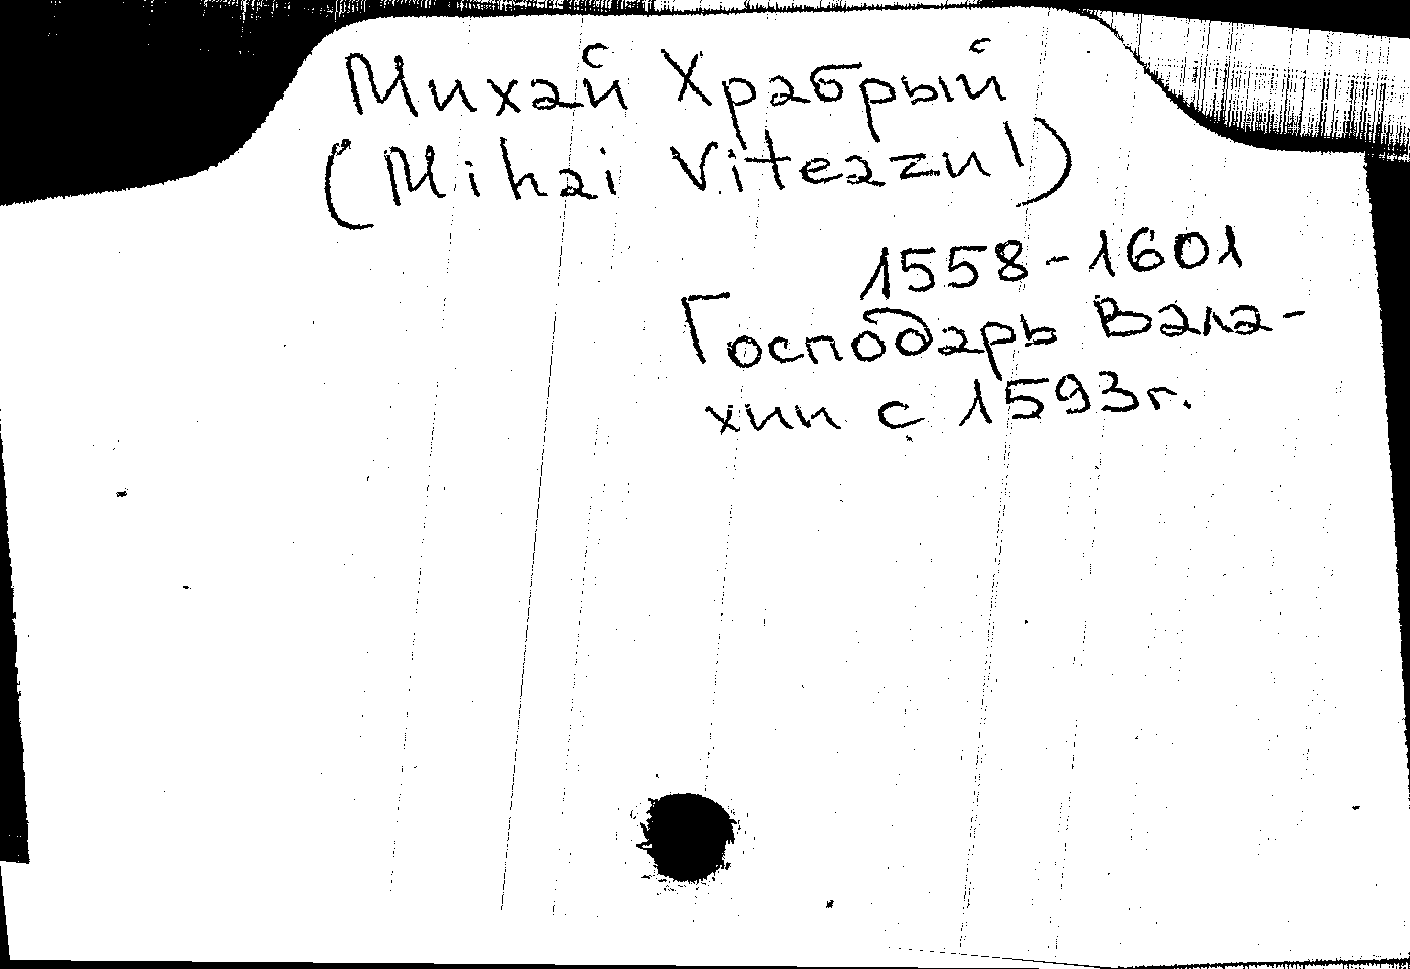 Михай Храбрый
(Mihai Viteazul)
1558-1601
Господарь Вала-
хии с 1593г.